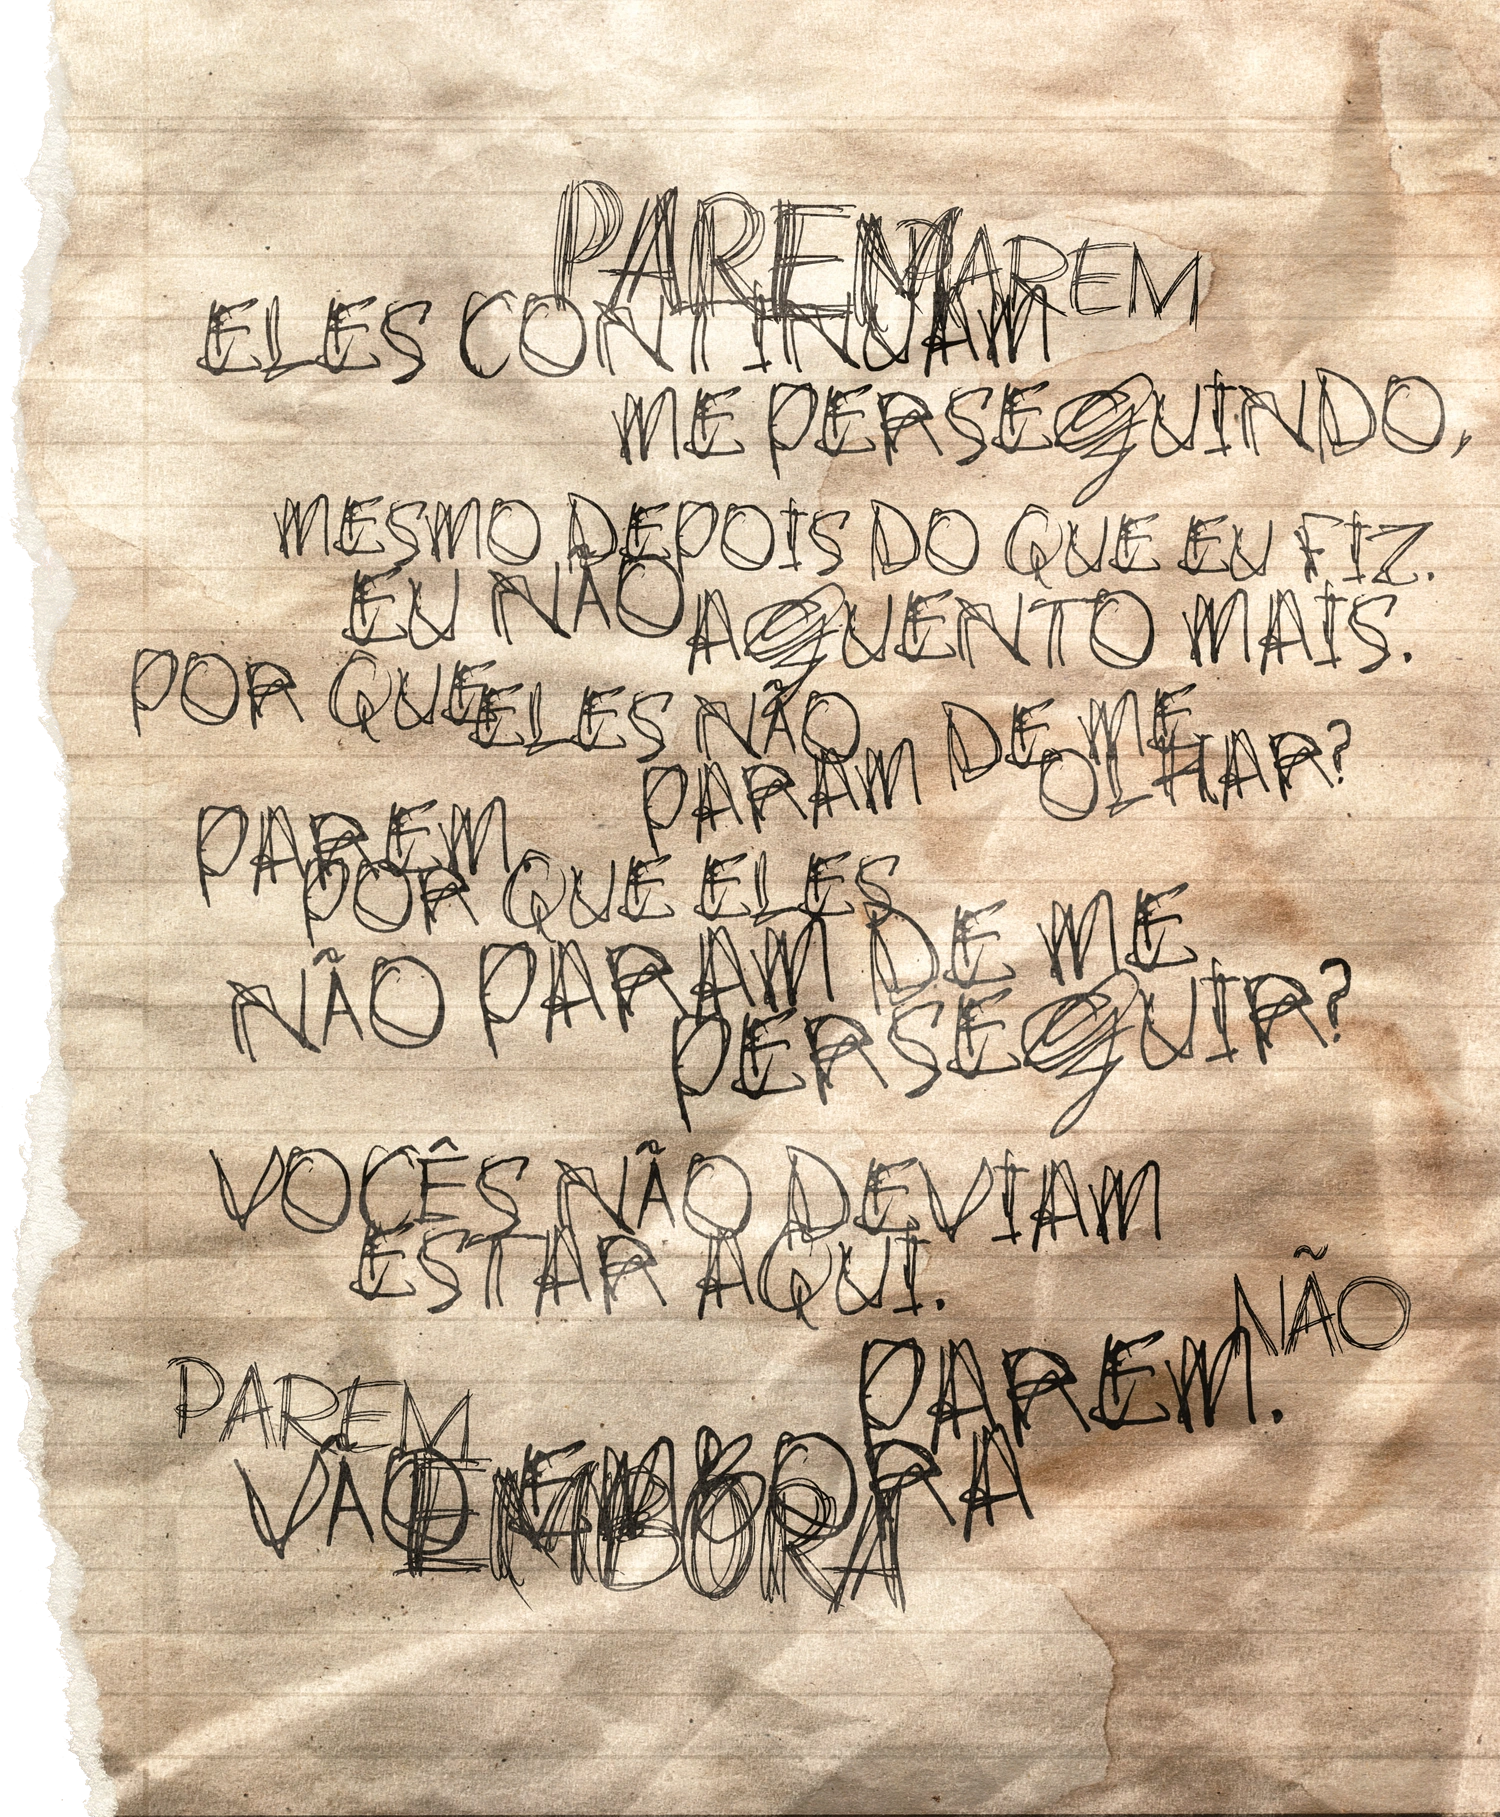 PAREM PAREM
ELES CONTINUAM
ME PERSEGUINDO,
MESMO DEPOIS DO QUE EU FIZ.
EU NÃO AGUENTO MAIS.
POR QUE ELES NÃO
PARAM DE ME
OLHAR?
PAREM
POR QUE ELES
NÃO PARAM DE ME
PERSEGUIR?
VOCÊS NÃO DEVIAM
ESTAR AQUI.
NÃO
PAREM.
PAREM
VÃO EMBORA
EMBORA